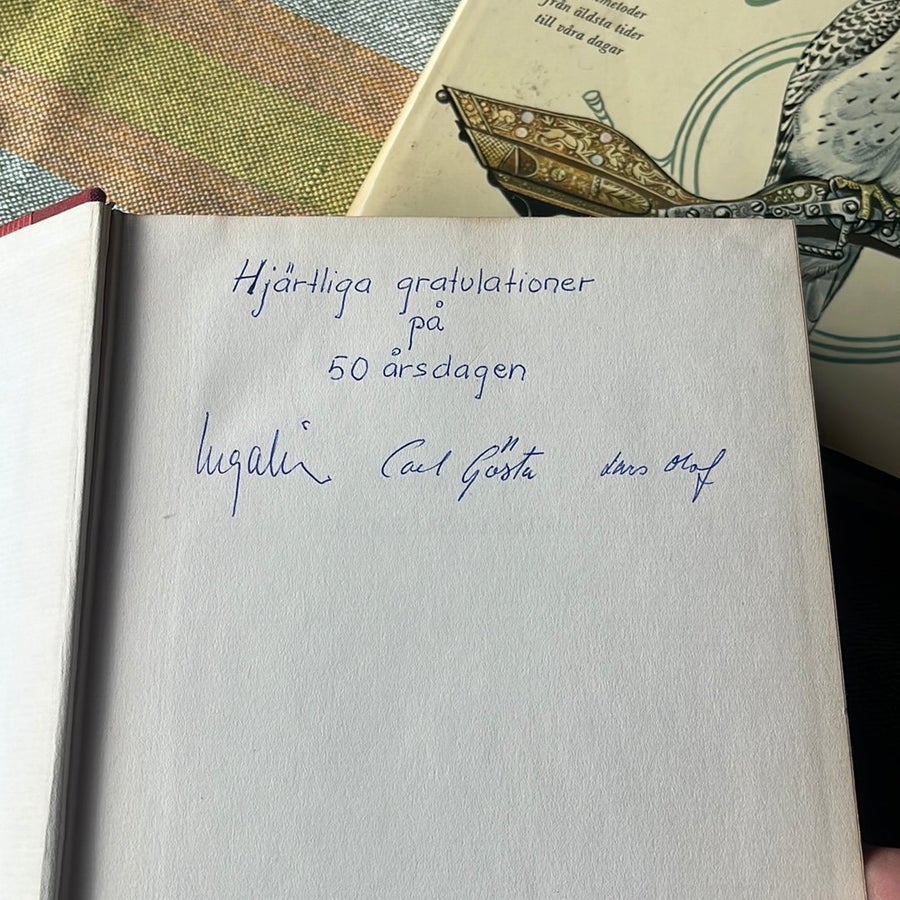 från äldsta tider
till våra dagar
Hjärtliga gratulationer
på
50 årsdagen
Ingalis Carl Gösta Lars Olof